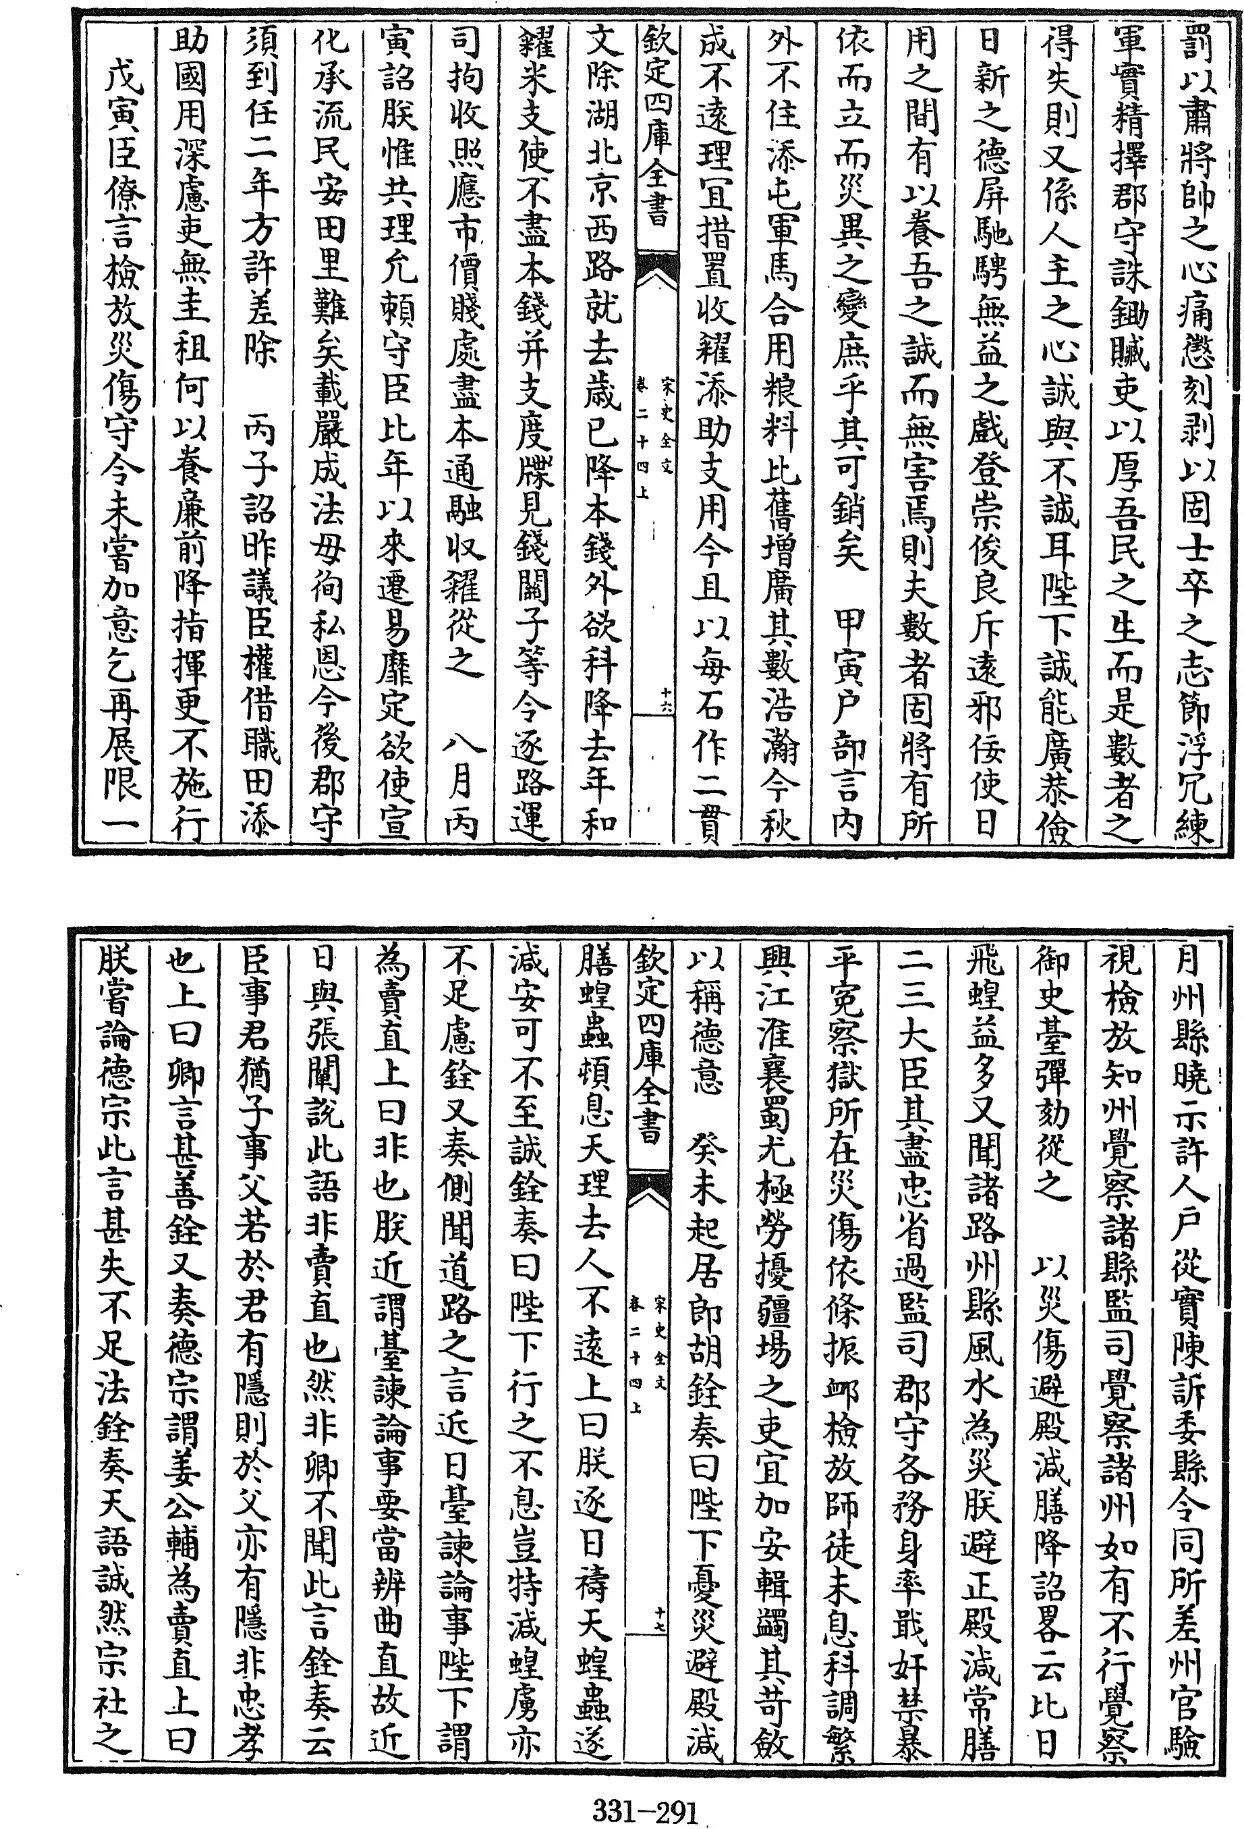 罰以肅將帥之心痛懲刻剥以固士卒之志節浮冗練
軍實精擇郡守誅鋤贓吏以厚吾民之生而是數者之
得失則又係人主之心誠與不誠耳陛下誠能廣恭儉
日新之德屏馳騁無益之戲登崇俊良斥遠邪佞使日
用之間有以養吾之誠而無害焉則夫數者固將有所
依而立而災異之變庶乎其可銷矣　甲寅户部言内
外不住添屯軍馬合用粮料比舊增廣其數浩瀚今秋
成不遠理宜措置收糴添助支用今且以每石作二貫
欽定四庫全書
宋史全文
卷二十四上
十六
文除湖北京西路就去歲已降本錢外欲科降去年和
糴米支使不盡本錢并支度牒見錢關子等令逐路運
司拘收照應市價賤處盡本通融收糴從之　八月丙
寅詔朕惟共理允頼守臣比年以來遷易靡定欲使宣
化承流民安田里難矣載嚴成法毋徇私恩今後郡守
須到任二年方許差除　丙子詔昨議臣權借職田添
助國用深慮吏無圭租何以養廉前降指揮更不施行
戊寅臣僚言檢放災傷守令未嘗加意乞再展限一
月州縣曉示許人戸從實陳訴委縣令同所差州官驗
視檢放知州覺察諸縣監司覺察諸州如有不行覺察
御史臺彈劾從之　以災傷避殿減膳降詔畧云比日
飛蝗益多又聞諸路州縣風水為災朕避正殿減常膳
二三大臣其盡忠省過監司郡守各務身率戢奸禁暴
平寃察獄所在災傷依條振䘏檢放師徒未息科調繁
興江淮襄蜀尤極勞擾疆埸之吏宜加安輯蠲其苛斂
以稱德意　癸未起居郎胡銓奏曰陛下憂災避殿減
欽定四庫全書
宋史全文
卷二十四上
十七
膳蝗蟲頓息天理去人不遠上曰朕逐日禱天蝗蟲遂
減安可不至誠銓奏曰陛下行之不息豈特減蝗虜亦
不足慮銓又奏側聞道路之言近日臺諫論事陛下謂
為賣直上曰非也朕近謂臺諫論事要當辨曲直故近
日與張闡說此語非賣直也然非卿不聞此言銓奏云
臣事君猶子事父若於君有隱則於父亦有隱非忠孝
也上曰卿言甚善銓又奏德宗謂姜公輔為賣直上曰
朕嘗論德宗此言甚失不足法銓奏天語誠然宗社之
331-291